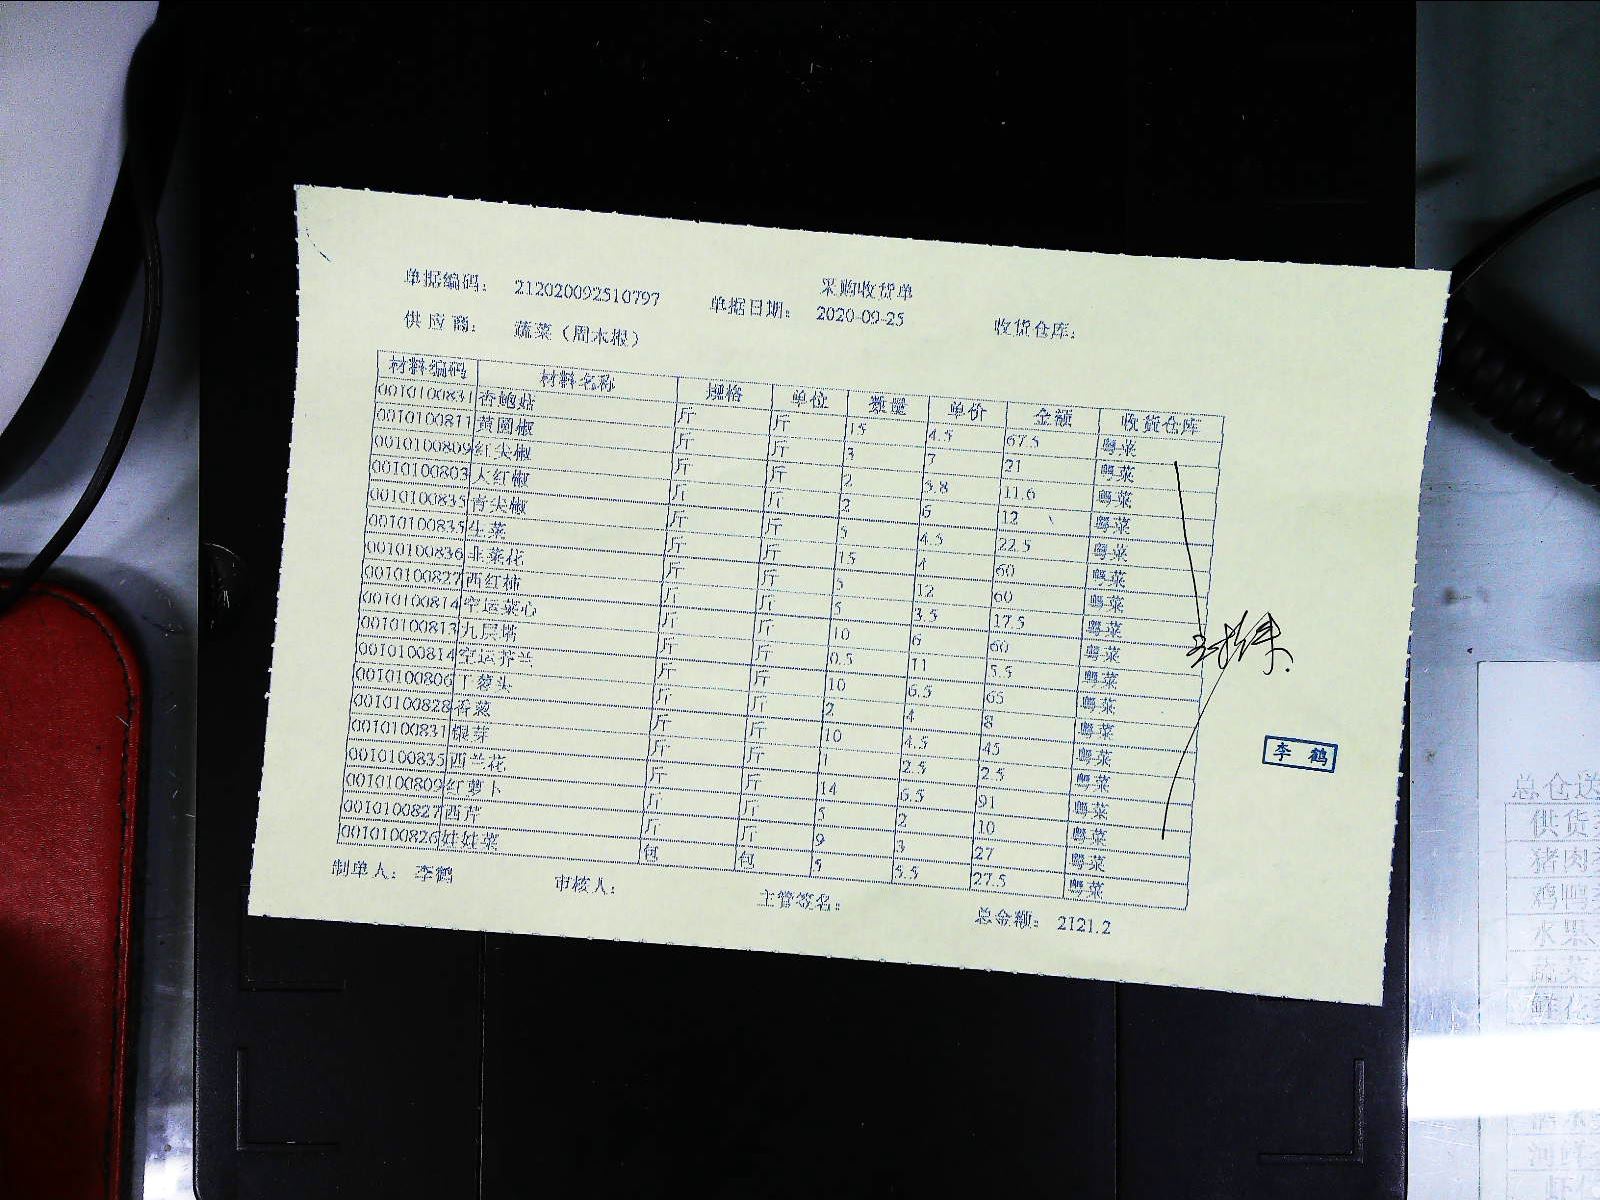 采购收货单
单据编码： 212020092510797 单据日期： 2020-09-25 收货仓库：
供 应 商： 蔬菜（周末报）
材料编码 材料名称 规格 单位 数量 单价 金额 收货仓库
0010100831 杏鲍菇 斤 斤 15 4.5 67.5 粤菜
0010100811 黄圆椒 斤 斤 3 7 21 粤菜
0010100809 红尖椒 斤 斤 2 5.8 11.6 粤菜
0010100803 大红椒 斤 斤 2 6 12 粤菜
0010100835 青尖椒 斤 斤 5 4.5 22.5 粤菜
0010100835 生菜 斤 斤 15 4 60 粤菜
0010100836 韭菜花 斤 斤 5 12 60 粤菜
0010100827 西红柿 斤 斤 5 3.5 17.5 粤菜
0010100814 空运菜心 斤 斤 10 6 60 粤菜
0010100813 九层塔 斤 斤 0.5 11 5.5 粤菜
0010100814 空运芥兰 斤 斤 10 6.5 65 粤菜
0010100806 干葱头 斤 斤 2 4 8 粤菜
0010100828 香葱 斤 斤 10 4.5 45 粤菜
0010100831 银芽 斤 斤 1 2.5 2.5 粤菜
0010100835 西兰花 斤 斤 14 6.5 91 粤菜
0010100809 红萝卜 斤 斤 5 2 10 粤菜
0010100827 西芹 斤 斤 9 3 27 粤菜
0010100826 娃娃菜 包 包 5 5.5 27.5 粤菜
制单人： 李鹤 审核人： 主管签名： 总金额： 2121.2
李 鹤
总仓送
供货
猪肉
鸡鸭
水果
蔬菜
鲜花